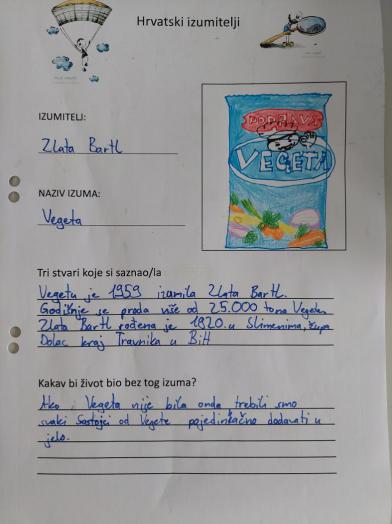 Hrvatski izumitelji
IZUMITELJ:
Zlata Bartl
PODRAVKA
VEGETA
NAZIV IZUMA:
Vegeta
Tri stvari koje si saznao/la
Vegetu je 1959 izumila Zlata Bartl.
Godišnje se proda više od 25.000 tona Vegete.
Zlata Bartl rođena je 1920. u Slimenima, župa
Dolac kraj Travnika u BiH
Kakav bi život bio bez tog izuma?
Ako Vegeta nije bila onda trebili smo
svaki Sastojci od Vegete pojedinačno dodavati u
jelo.